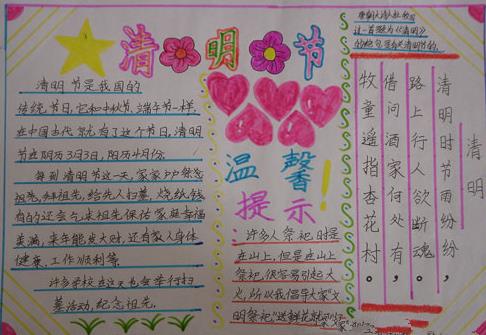 清明节
清明节是我国的
传统节日,它和中秋节、端午节一样,
在中国古代就有了这个节日,清明
节在阴历3月3日,阳历4月份。
每到清明节这一天,家家户户祭奠
祖先,拜祖先,给先人扫墓,烧纸钱,
有的还会乞求祖先保佑家庭幸福
美满,来年能发大财,还有家人身体
健康、工作顺利等。
许多学校在这天也会举行扫
墓活动,纪念祖先。
温馨
提示!
许多人祭祀时是
在山上,但是在山上
祭祀,很容易引起大
火,所以我倡导大家"文
明祭祀"
清明
清明时节雨纷纷,
路上行人欲断魂。
借问酒家何处有,
牧童遥指杏花村。